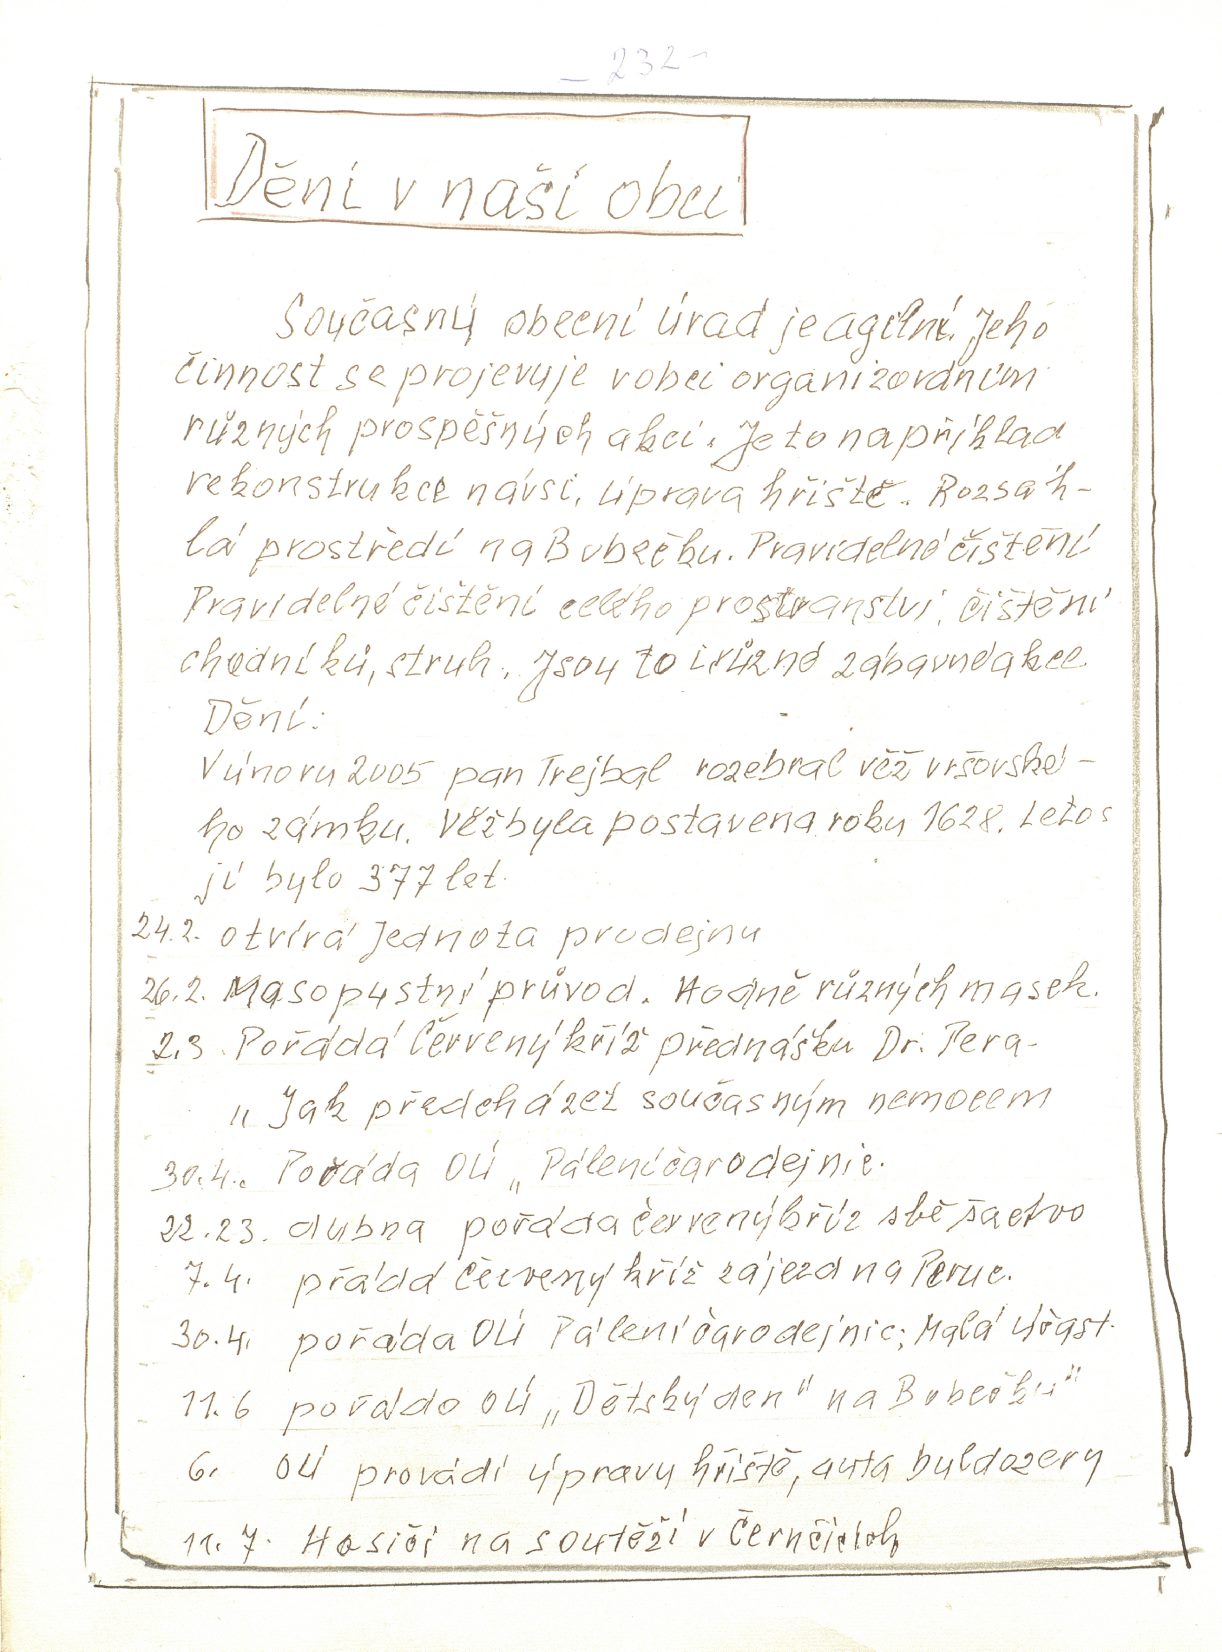 - 232 -
Dění v naší obci
Současný obecní úřad je agilní. Jeho
činnost se projevuje v obci organizováním
různých prospěšných akcí. Je to například
rekonstrukce návsi, úprava hřiště. Rozsáh-
lá prostředí na Bubečku. Pravidelné čištění
Pravidelné čištění celého prostranství, čištění
chodníků, struh. Jsou to i různé zábavné akce
Dění:
V únoru 2005 pan Trejbal rozebral věž vršovské-
ho zámku. Věž byla postavena roku 1628. Letos
jí bylo 377 let.
24.2. otvírá Jednota prodejnu
26.2. Masopustní průvod. Hodně různých masek.
2.3 Pořádá Červený kříž přednášku Dr. Pera-
„ Jak předcházet současným nemocem
30.4. Pořáda OÚ „ Pálení čarodejnic.
22.23. dubna pořáda červený kříz sbě šactvo
7.4. přádá červený kříž zájezd na Peruc.
30.4. pořáda OÚ Pálení čarodejnic; Malá účast.
11.6 pořádo OÚ „Dětský den" na Bubečku"
6. OÚ provádí úpravu hřiště, auta buldozery
11.7. Hasiči na soutěži v Černčicích